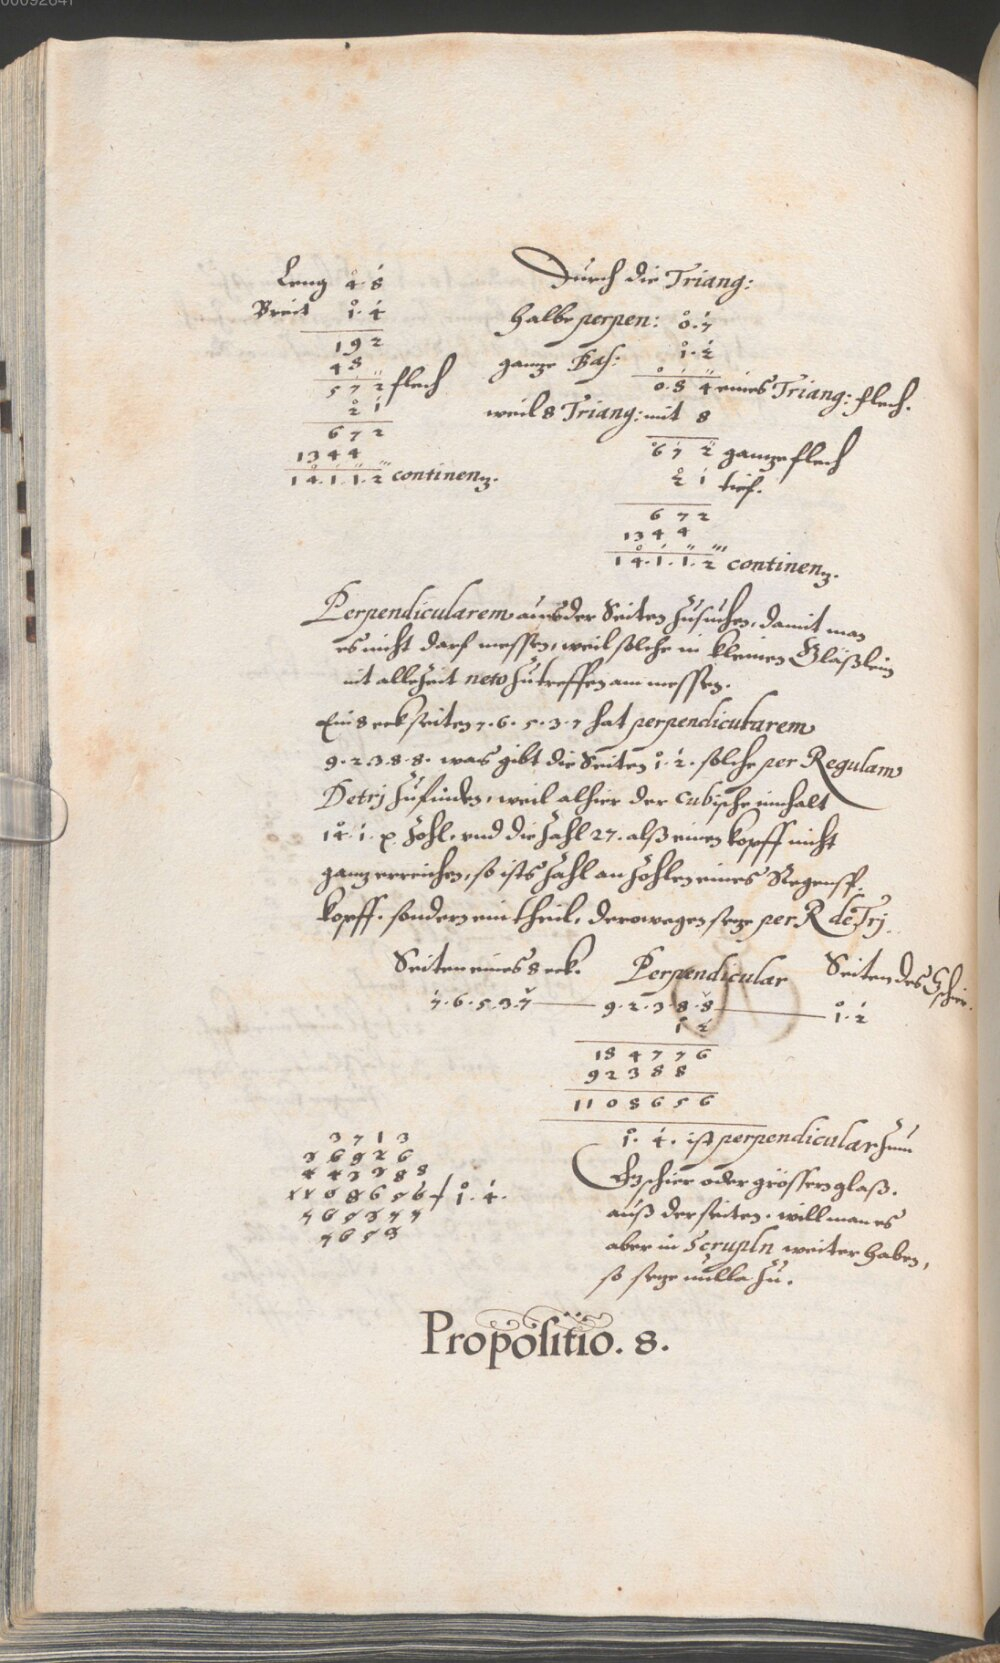 00092641
Leng 4. 8
Breit 1. 4
192
48
572 flech
2 1
672
1344
14. 1. 1. 2 continenz.
Durch die Triang:
halbe perpen: 0. 7
ganze Bas: 1. 2
0. 8 4 eines Triang: flech.
weil 8 Triang: mit 8
6 7 2 ganze flech
2 1 tief.
6 7 2
1344
14. 1. 1. 2 continenz.
Perpendicularem aus der Seiten zusuchen, damit man
es nicht darf messen, weil solche in kleinen Gläßlein
nit allezeit neto zutreffen am messen.
Ein 8 eck seiten 7. 6. 5. 3. 7 hat perpendicularem
9. 2. 3. 8. 8. was gibt die Seiten 1. 2. solche per Regulam
Detrj zufinden, weil alhier der cubische innhalt
14. 1. p. hohl. und die zahl 27. alß einen kopff nicht
ganz erreichen, so ists zahl an hohlen eines Regensp.
kopff. sondern ein theil, derowegen seze per R deTrj.
Seiten eines 8 eck. Perpendicular Seiten des
7. 6. 5. 3. 7 9. 2. 3. 8. 8 1. 2
1 2
18 4 7 7 6
9 2 3 8 8
11 0 8 6 5 6
1. 4. ist perpendicular zum
geschier oder grössern glaß.
auß der seiten. will man es
aber in Scrupln weiter haben,
so seze nulla zu.
3 7 1 3
3 6 9 2 6
4 4 3 3 8 8
1 1 0 8 6 5 6 / 1. 4.
7 6 5 3 7 7
7 6 5 3
Propositio. 8.